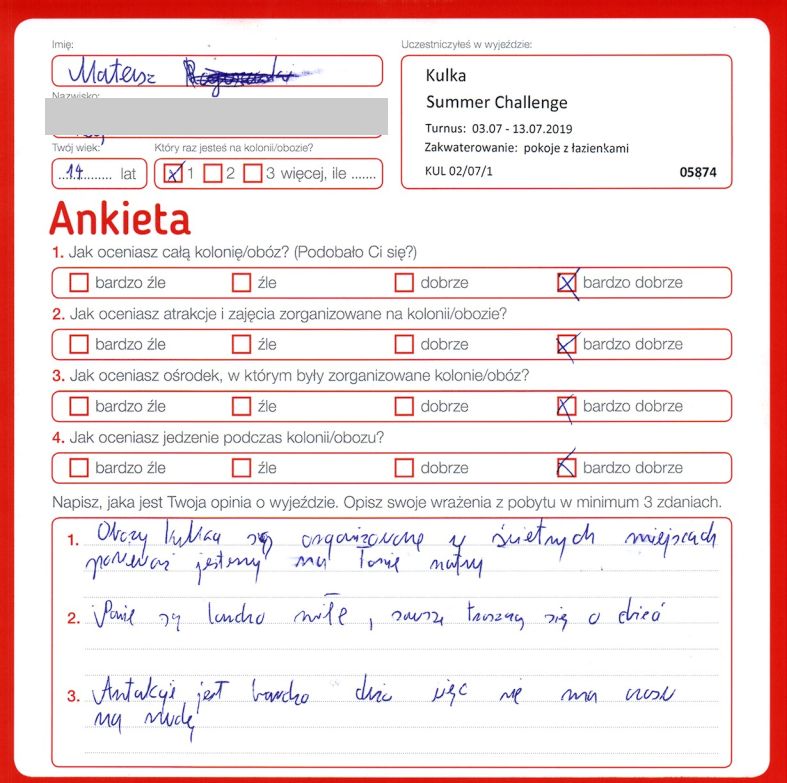 Imię:
Mateusz
Uczestniczyłeś w wyjeździe:
Kulka
Summer Challenge
Turnus: 03.07 - 13.07.2019
Zakwaterowanie: pokoje z łazienkami
KUL 02/07/1 05874
Nazwisko:
Twój wiek: Który raz jesteś na kolonii/obozie?
14 lat x 1 2 3 więcej, ile .......
Ankieta
1. Jak oceniasz całą kolonię/obóz? (Podobało Ci się?)
bardzo źle źle dobrze x bardzo dobrze
2. Jak oceniasz atrakcje i zajęcia zorganizowane na kolonii/obozie?
bardzo źle źle dobrze x bardzo dobrze
3. Jak oceniasz ośrodek, w którym były zorganizowane kolonie/obóz?
bardzo źle źle dobrze x bardzo dobrze
4. Jak oceniasz jedzenie podczas kolonii/obozu?
bardzo źle źle dobrze x bardzo dobrze
Napisz, jaka jest Twoja opinia o wyjeździe. Opisz swoje wrażenia z pobytu w minimum 3 zdaniach.
1. Obozy kulka są organizowane w świetnych miejscach
ponieważ jesteśmy na łonie natury
2. Panie są bardzo miłe, zawsze troszczą się o dzieci
3. Atrakcji jest bardzo dużo więc nie ma czasu
na nudę